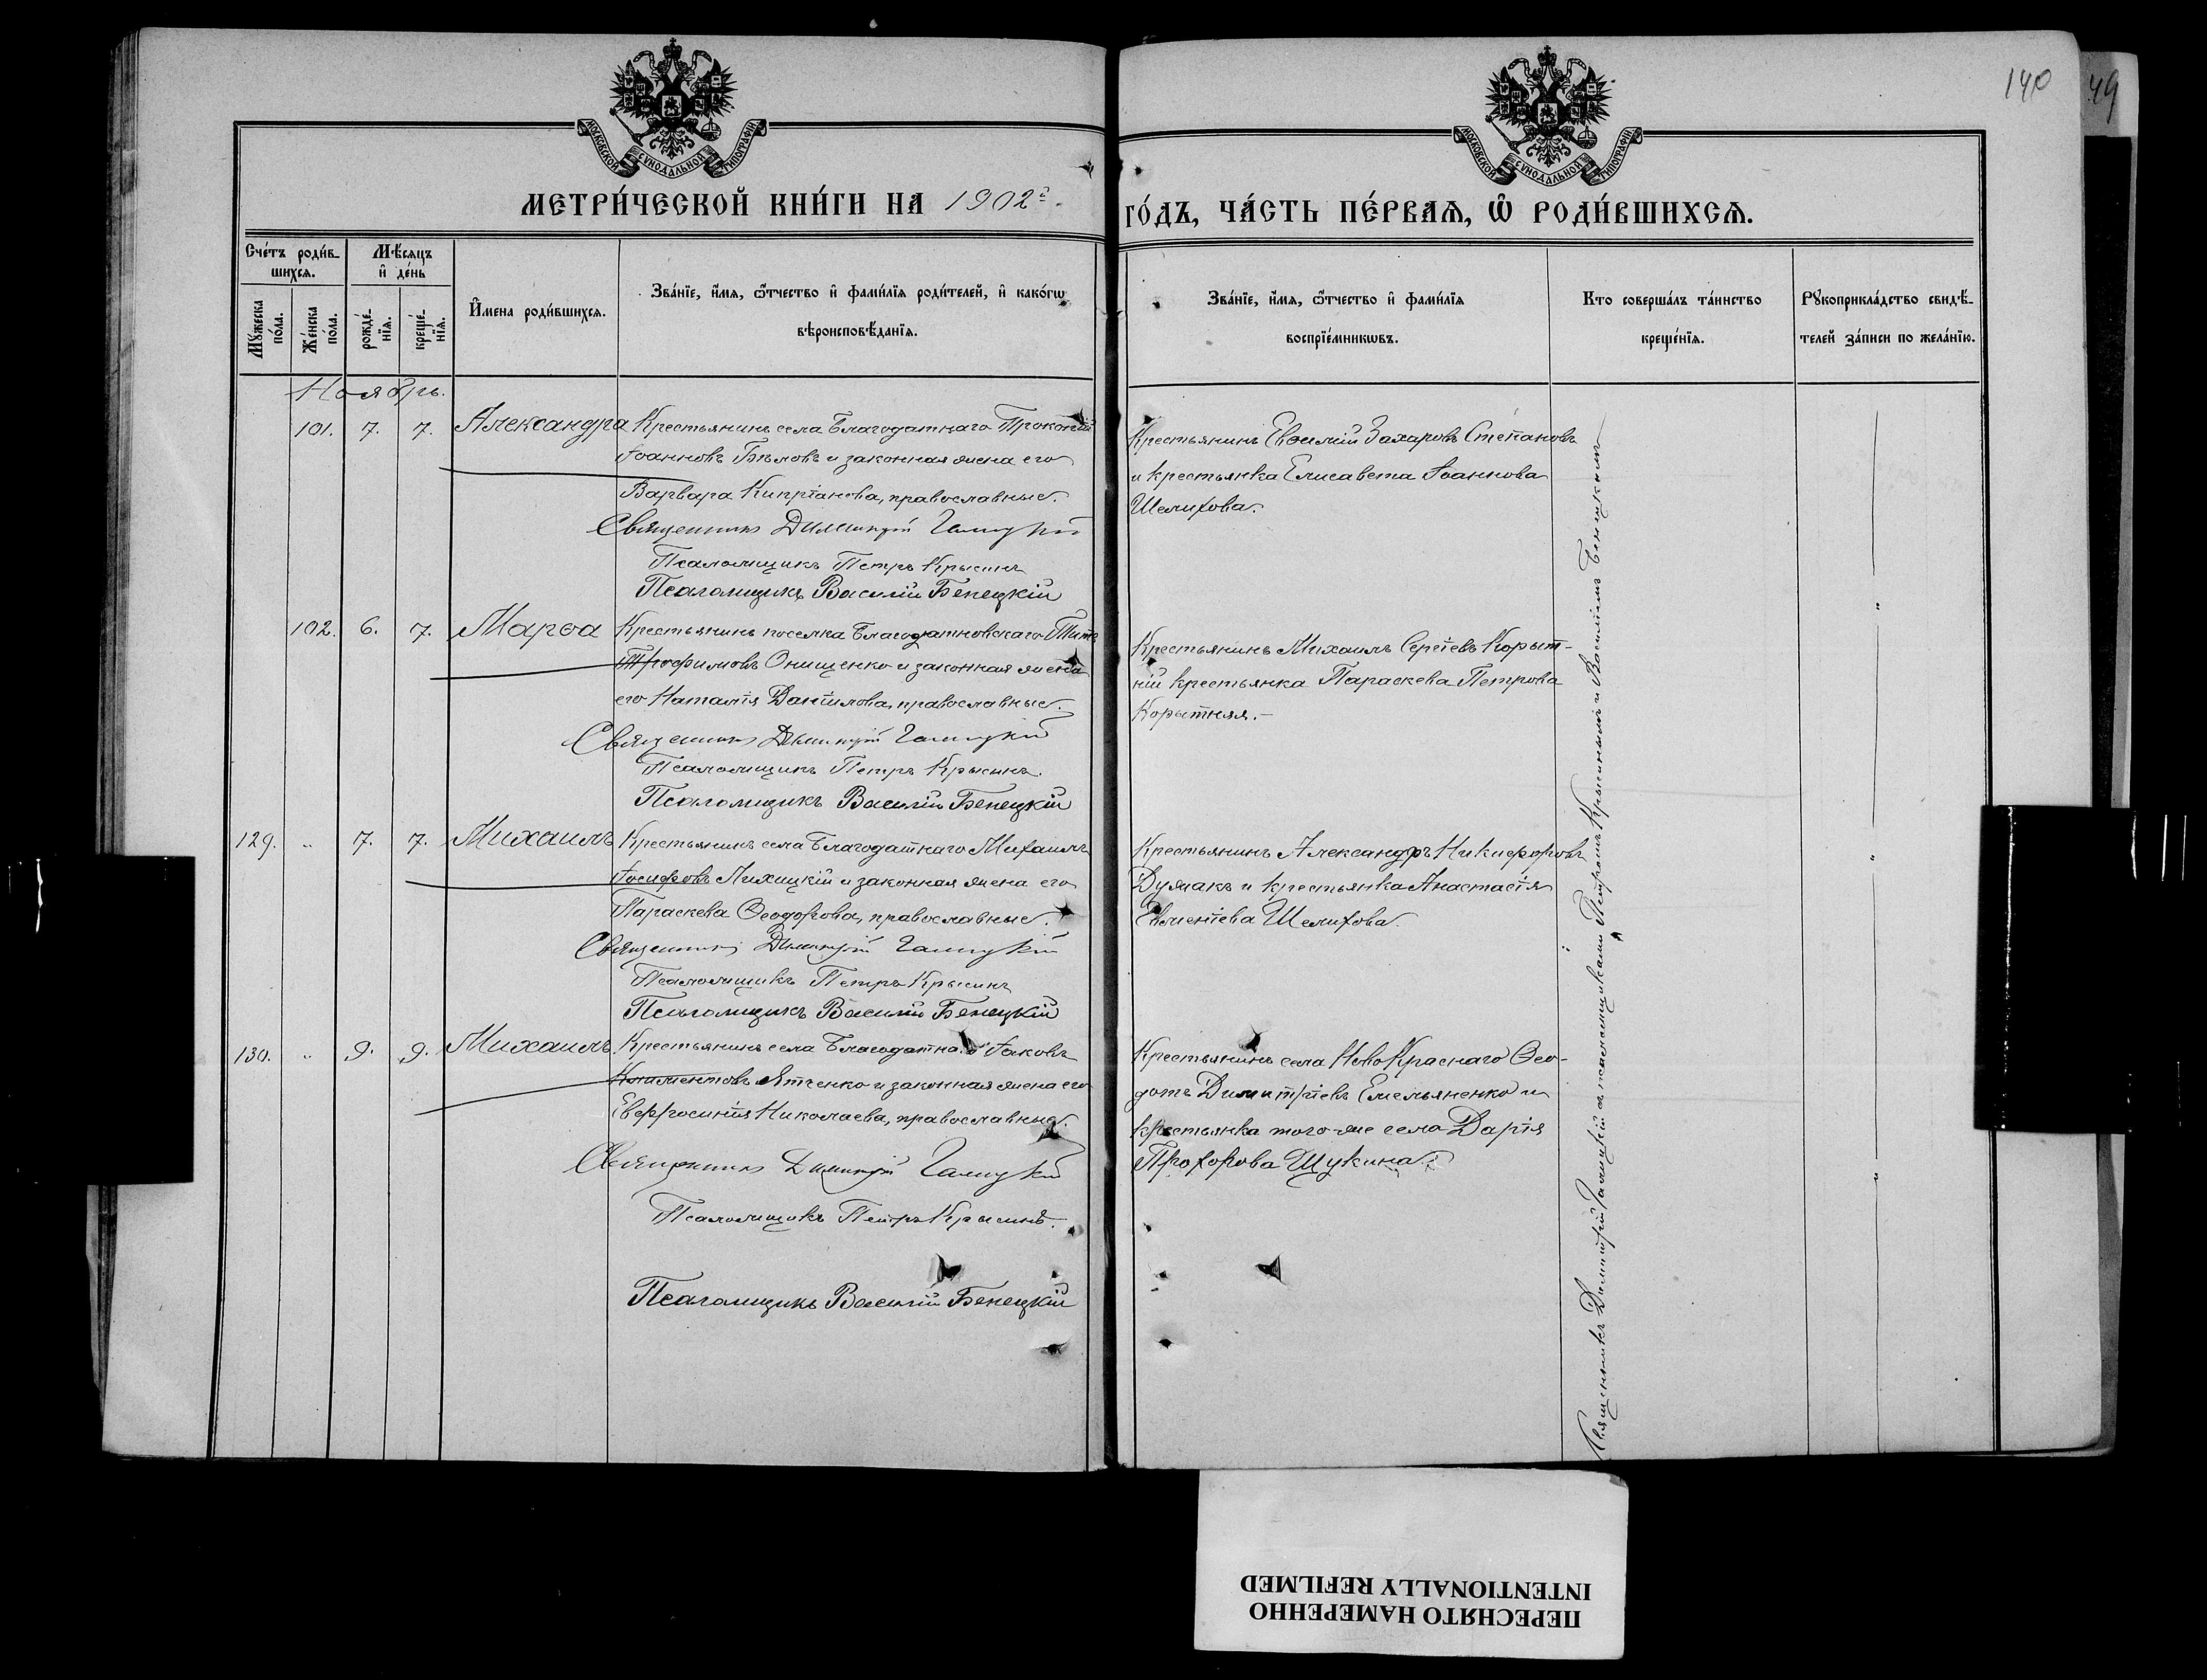 140
49
МОСКОВСКОЙ СѴНОДАЛЬНОЙ ТИПОГРАФІИ
МОСКОВСКОЙ СѴНОДАЛЬНОЙ ТИПОГРАФІИ
МЕТРИ́ЧЕСКОЙ КНИ́ГИ НА 1902 г.
ГО́ДЪ, ЧА́СТЬ ПЕ́РВАѦ, Ѡ҆ РОДИ́ВШИХСѦ.
Сче́тъ роди́в-
шихсѧ.
Мꙋ́жеска по́ла.
Же́нска по́ла.
Мѣ́сяцъ
и҆ де́нь
рожде́-
нїѧ.
креще́-
нїѧ.
И҆мена роди́вшихсѧ.
Зва́нїе, и҆́мѧ, ѻ҆́тчество и҆ фами́лїѧ роди́телей, и҆ како́гѡ
вѣроисповѣ́данїѧ.
Зва́нїе, и҆́мѧ, ѻ҆́тчество и҆ фами́лїѧ
воспрїе́мникѡвъ.
Кто соверша́лъ та́инство
креще́нїѧ.
Рꙋкоприкла́дство свидѣ́-
телей за́писи по жела́нїю.
Ноябрь.
101. 7. 7. Александра Крестьянинъ села Благодатнаго Прокопій
Іоанновъ Бѣловъ и законная жена его
Варвара Кипріанова, православные.
Священникъ Димитрій Галицкій
Псаломщикъ Петръ Крысинъ
Псаломщикъ Василій Бенецкій
Крестьянинъ Евѳимій Захаровъ Степановъ
и крестьянка Елисавета Іоаннова
Шелихова.
102. 6. 7. Марѳа Крестьянинъ поселка Благодатновскаго Титъ
Трофимовъ Онищенко и законная жена
его Наталія Даніилова, православные.
Священникъ Димитрій Галицкій
Псаломщикъ Петръ Крысинъ.
Псаломщикъ Василій Бенецкій
Крестьянинъ Михаилъ Сергіевъ Корыт-
ній крестьянка Параскева Петрова
Корытняя.
129. " 7. 7. Михаилъ Крестьянинъ села Благодатнаго Михаилъ
Іосифовъ Лихицкій и законная жена его
Параскева Ѳеодорова, православные.
Священникъ Димитрій Галицкій
Псаломщикъ Петръ Крысинъ
Псаломщикъ Василій Бенецкій
Крестьянинъ Александръ Никифоровъ
Думакъ и крестьянка Анастасія
Шелихова.
130. " 9. 9. Михаилъ Крестьянинъ села Благодатнаго Іаковъ
Климентовъ Ятченко и законная жена его
Евфросинія Николаева, православные.
Священникъ Димитрій Галицкій
Псаломщикъ Петръ Крысинъ.
Псаломщикъ Василій Бенецкій
Крестьянинъ села Ново Краснаго Ѳео-
дотъ Димитріевъ Емельяненко и
крестьянка того-же села Дарія
Прохорова Щукина.
Священникъ Димитрій Галицкій съ псаломщиками Петромъ Крысинымъ и Василіемъ Бенецкимъ
ПЕРЕСНЯТО НАМЕРЕННО
INTENTIONALLY REFILMED